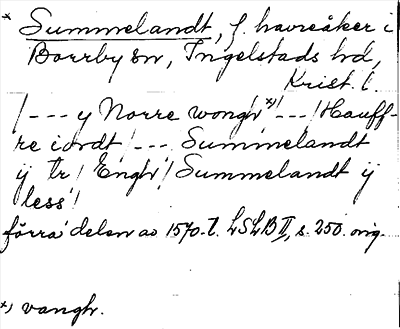 * Summelandt, f. havreåker i
Borrby sn, Ingelstads hd,
Krist. l.
/--- y Norre wongh *)/---/ Hauff-
re iordt /--- Summelandt
ÿ tr / Engh / Summelandt ÿ
less /
förra delen av 1570-t. LSLB II, s. 250. orig.
*) vangh.